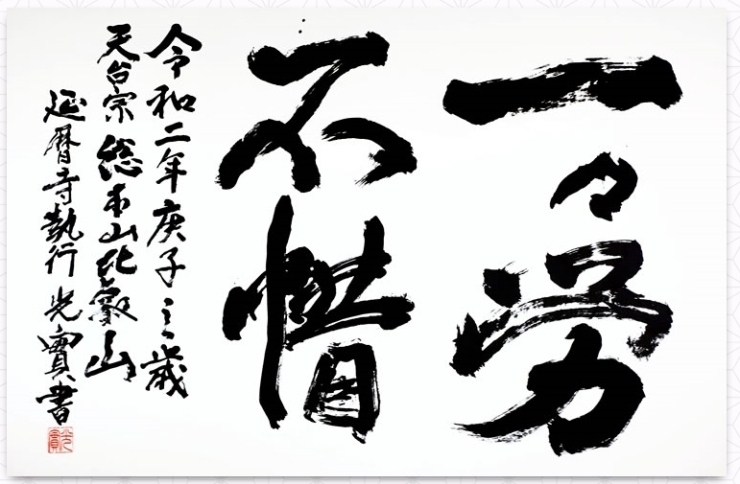 一々労
不惜
令和二年庚子之歳
天台宗總本山比叡山
延暦寺執行光實書